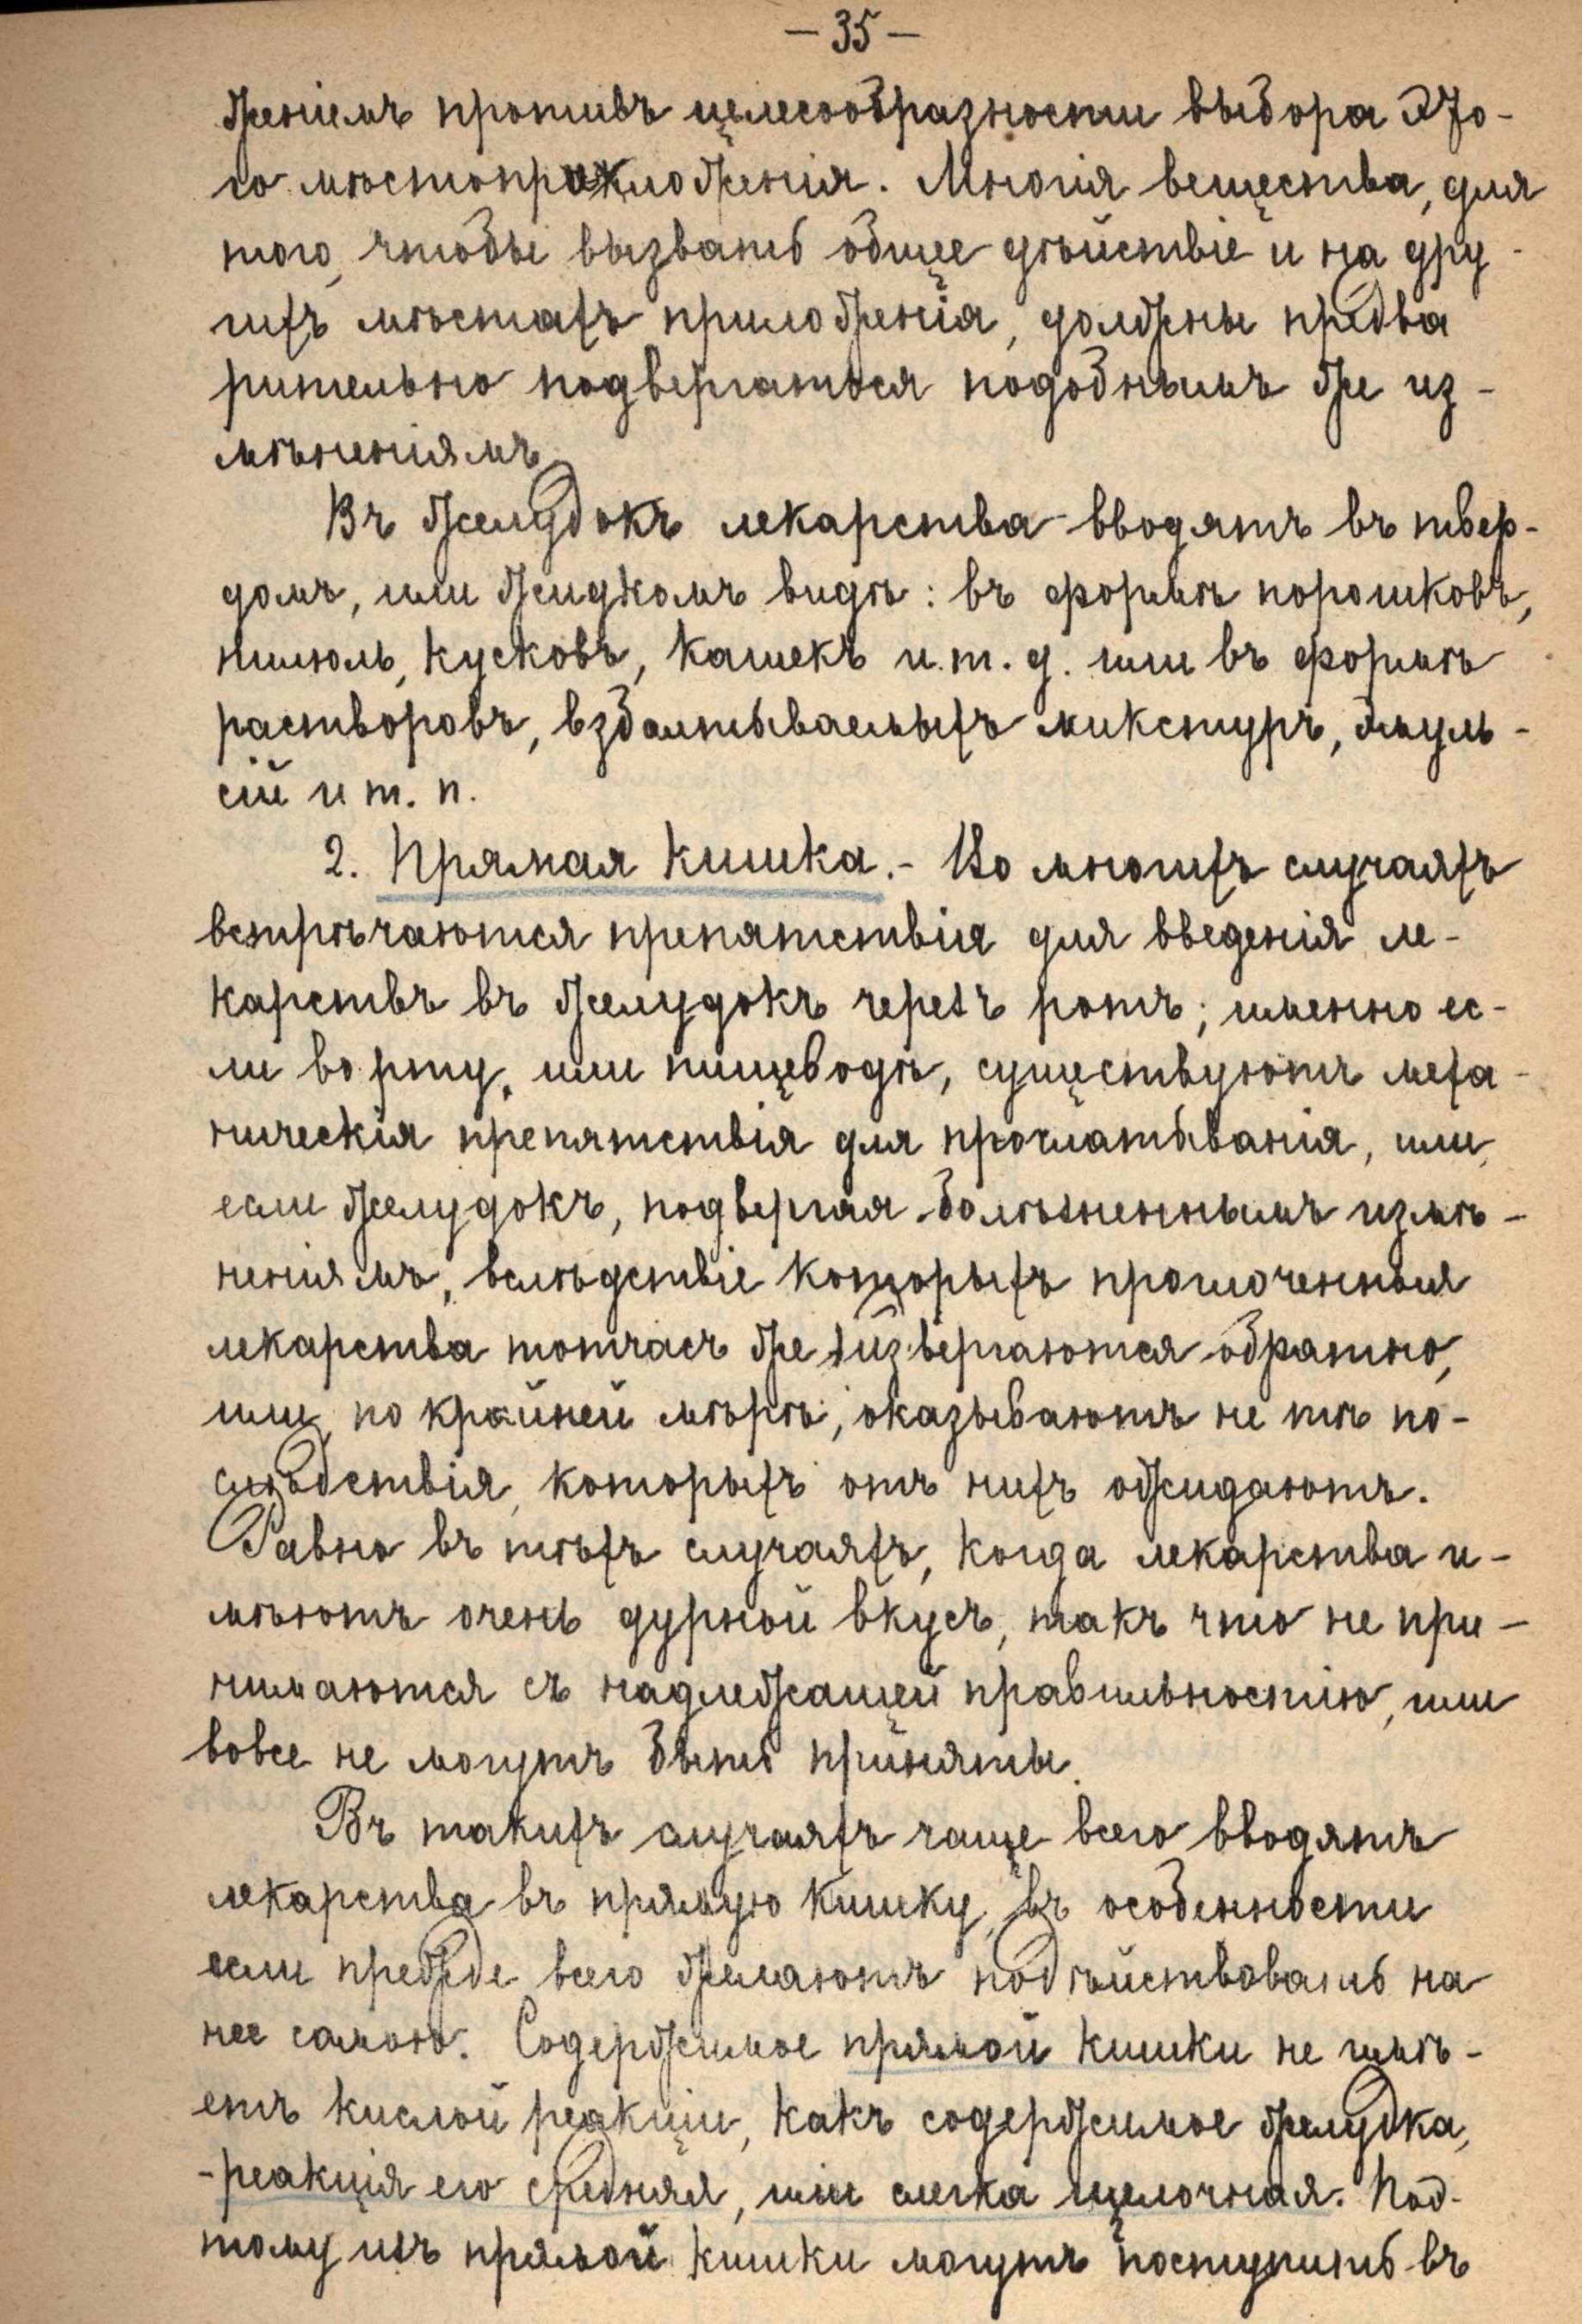 — 35 —
женіемъ противъ цѣлесообразности выбора это-
го мѣстоприложенія. Многія вещества, для
того, чтобы вызвать общее дѣйствіе и на дру-
гихъ мѣстахъ приложенія, должны предва
рительно подвергаться подобнымъ же из-
мѣненіямъ.
Въ желудокъ лекарства вводятъ въ твер-
домъ, или жидкомъ видѣ: въ формѣ порошковъ,
пилюль, кусковъ, кашекъ и.т.д. или въ формѣ
растворовъ, взбалтываемыхъ микстуръ, эмуль-
сій и т. п.
2. Прямая кишка.- Во многихъ случаяхъ
встрѣчаются препятствія для введенія ле-
карствъ въ желудокъ черезъ ротъ; именно ес-
ли во рту, или пищеводѣ, существуютъ меха-
ническія препятствія для проглатыванія, или,
если желудокъ, подвергая болѣзненнымъ измѣ-
неніямъ, вслѣдствіе которыхъ проглоченныя
лекарства тотчасъ же извергаются обратно,
или, по крайней мѣрѣ, оказываютъ не тѣ по-
слѣдствія, которыхъ отъ нихъ ожидаютъ.
Равно въ тѣхъ случаяхъ, когда лекарства и-
мѣютъ очень дурной вкусъ, такъ что не при-
нимаются съ надлежащей правильностію, или
вовсе не могутъ быть приняты.
Въ такихъ случаяхъ чаще всего вводятъ
лекарства въ прямую кишку, въ особенности
если прежде всего желаютъ подѣйствовать на
нее самою. Содержимое прямой кишки не имѣ-
етъ кислой реакціи, какъ содержимое желудка,
-реакція его средняя, или слегка щелочная. Поэ-
тому изъ прямой кишки могутъ поступить въ